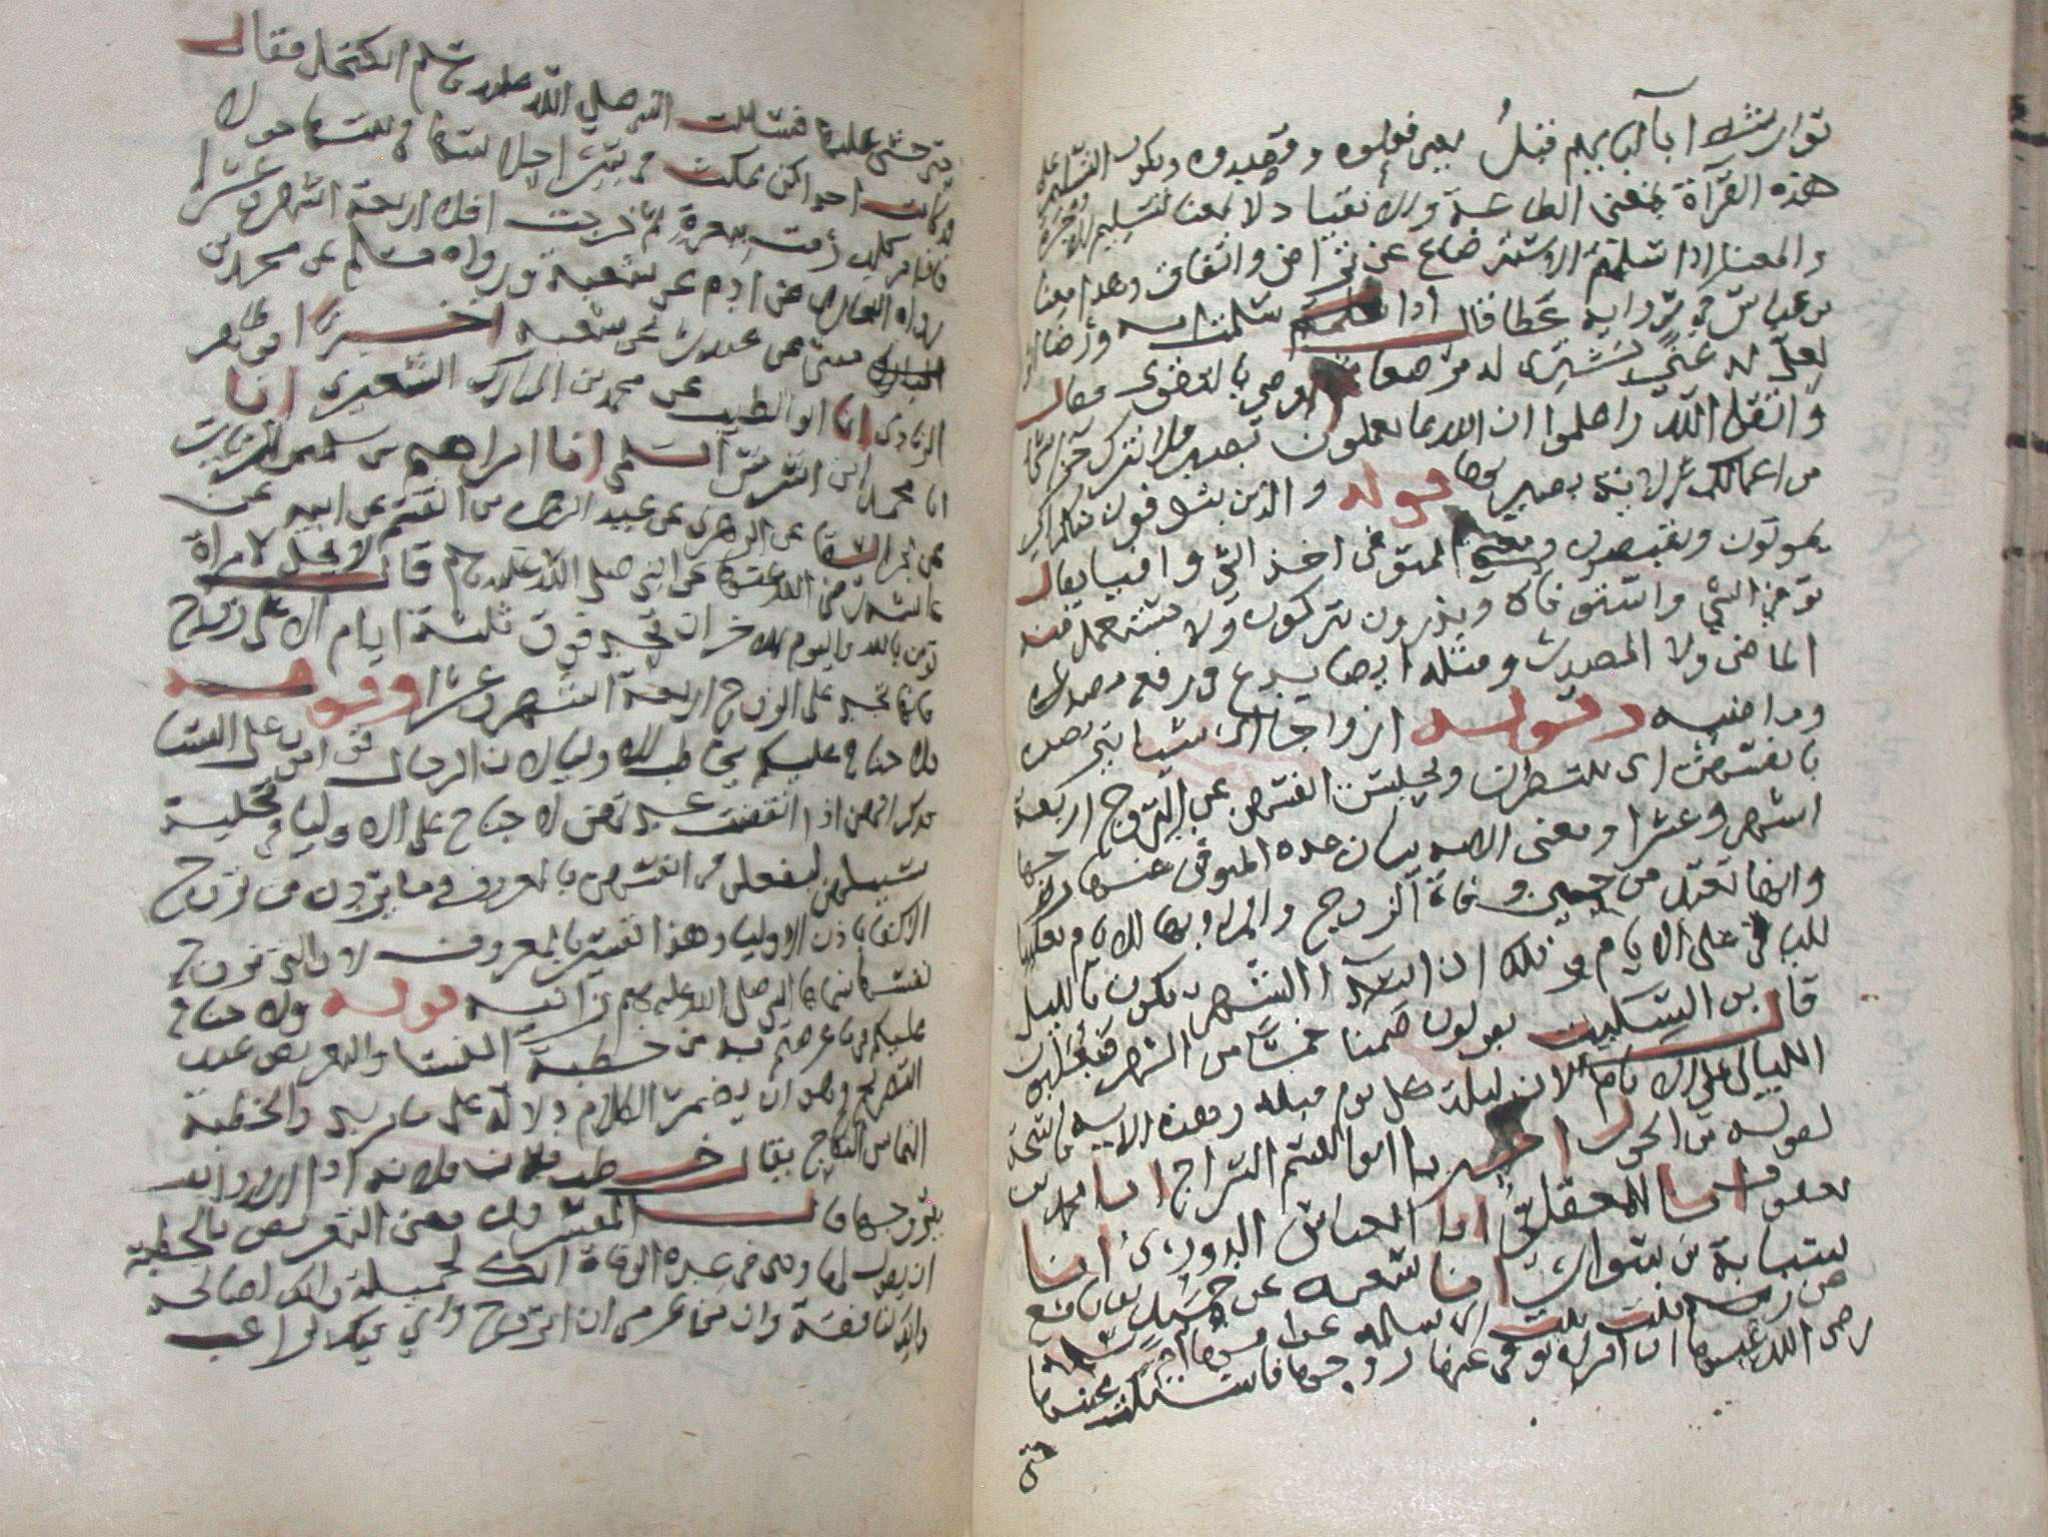 توارثنا آبآ يهم قبل بمعنى فعلوه وقصدوه ويكون التسليم على
هذه القرآة بمعنى الطاعة والانقياد لا بمعنا تسليم الاجرة
والمعنا اذا سلمتم الاسترضاع عن تراض واتفاق وهذا معنا
بن عباس في رواية عطا قال اذا سلمتم سلمت امه ورضا ابوه
لعل له غنى يشترى له مرضعا اوصى بالتقوى فقال
واتقوا الله واعلموا ان الله بما تعملون بصير فلا تترك
من اعمالكم لانه بصير بها قوله والذين يتوفون منكم اى
يموتون ويقبضون ومعنى التوفى اخذ الشي وافيا يقال
توفى الشي واستوفاه ويذرون يتركون ولا يستعمل منه
الماضى ولا المصدر ومثله ايضا يدع في رفض مصدره
وماضيه وقوله ازواجا اى نسا يتربصن
بانفسهن اى ينتظرن ويحبسن انفسهن عن التزوج اربعة
اشهر وعشرا ومعنى الايه بيان عدة المتوفى عنها زوجها
وانها تعتد من حين وفاة الزوج والمراد بها الايام تغليبا
لليالى على الايام وذلك ان ابتدآ الشهر يكون بالليل
قال بن السكيت يقولون صمنا خمسا من الشهر فيغلبون
الليالى على الايام لان ليلة كل يوم قبله وهذه الايه ناسخة
لقوله من الحول اخبرنا ابوا القسم السراج انا محمد بن
يعقوب انا المعقلى انا العباس الدورى انا
شبابة بن سوار انا شعبه عن حميد بن نافع
عن زينب بنت ام سلمه عن امها ام سلمة
رضى الله عنها ان امراة توفى عنها زوجها فاشتكت عينها
حتى
حتى خشى عليها فسالت النبى صلى الله عليه وسلم اتكتحل فقال
قد كانت احداكن تمكث في شر احلاسها في بيتها حولا
فاذا مر كلب رمت ببعرة ثم خرجت افلا اربعة اشهر وعشرا
رواه البخارى عن ادم عن شعبة ورواه مسلم عن محمد بن
مثنى عن غندر عن شعبه اخبرنا ابو طاهر
الزيادى انا ابو الطيب عن محمد بن المبارك الشعيرى انا
انا محمد بن اشرس السلمى انا ابراهيم بن سليمن الزيات
عن بحر السقا عن الزهرى عن عبيد الرحمن بن القسم عن ابيه عن
عائشه رضى الله عنها عن النبى صلى الله عليه وسلم قال لا يحل لامراة
تومن بالله واليوم الاخر ان تحد فوق ثلثة ايام الا على زوج
فانها تحد على الزوج اربعة اشهر وعشرا وقوله
فلا جناح عليكم يخاطب الاوليا لان الرجال قوامين على النسا
يذكر انهن اذا انقضت عدتهن لا جناح على الاوليا في تخلية
سبيلهن ليفعلن في انفسهن بالمعروف وما يردن من تزوج
الاكفا باذن الاوليا وهذا تفسير بالمعروف لان التى تزوج
نفسها سماها النبى صلى الله عليه وسلم زانيه قوله ولا جناح
عليكم فيما عرضتم به من خطبة النسا والتعريض ضد
التصريح وهو ان يضمر الكلام دلالة على ما يريد والخطبة
التماس النكاح يقال خطب فلان فلانه اذا اراد ان
يتزوجها قال المفسرون ومعنى التعريض بالخطبة
ان يقول لها وهى في عدة الوفاة انك لجميلة وانك لصالحه
وانك لنافعة وان من عزمى ان اتزوج وانى فيك لراغب